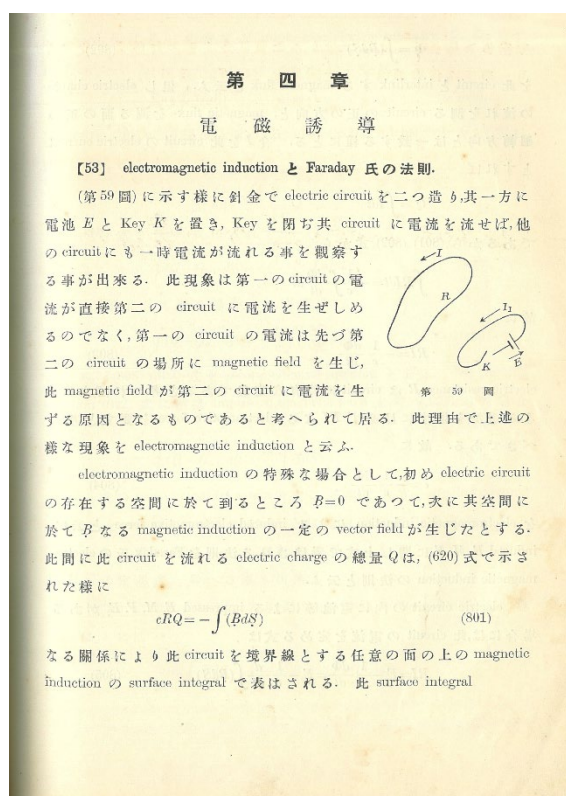 第四章
電磁誘導
【53】 electromagnetic induction と Faraday 氏の法則.
(第59圖) に示す様に針金で electric circuit を二つ造り,其一方に
電池 E と Key K を置き, Key を閉ぢ其 circuit に電流を流せば,他
の circuit にも一時電流が流れる事を觀察す
る事が出來る. 此現象は第一の circuit の電
流が直接第二の circuit に電流を生ぜしめ
るのでなく,第一の circuit の電流は先づ第
二の circuit の場所に magnetic field を生じ,
此 magnetic field が第二の circuit に電流を生
I
R
I₁
K
E
第 59 圖
ずる原因となるものであると考へられて居る. 此理由で上述の
様な現象を electromagnetic induction と云ふ.
electromagnetic induction の特殊な場合として,初め electric circuit
の存在する空間に於て到るところ B=0 であつて,次に其空間に
於て B なる magnetic induction の一定の vector field が生じたとする.
此間に此 circuit を流れる electric charge の總量 Q は, (620) 式で示さ
れた様に
cRQ=−∫(BdS) (801)
なる關係により此 circuit を境界線とする任意の面の上の magnetic
induction の surface integral で表はされる. 此 surface integral